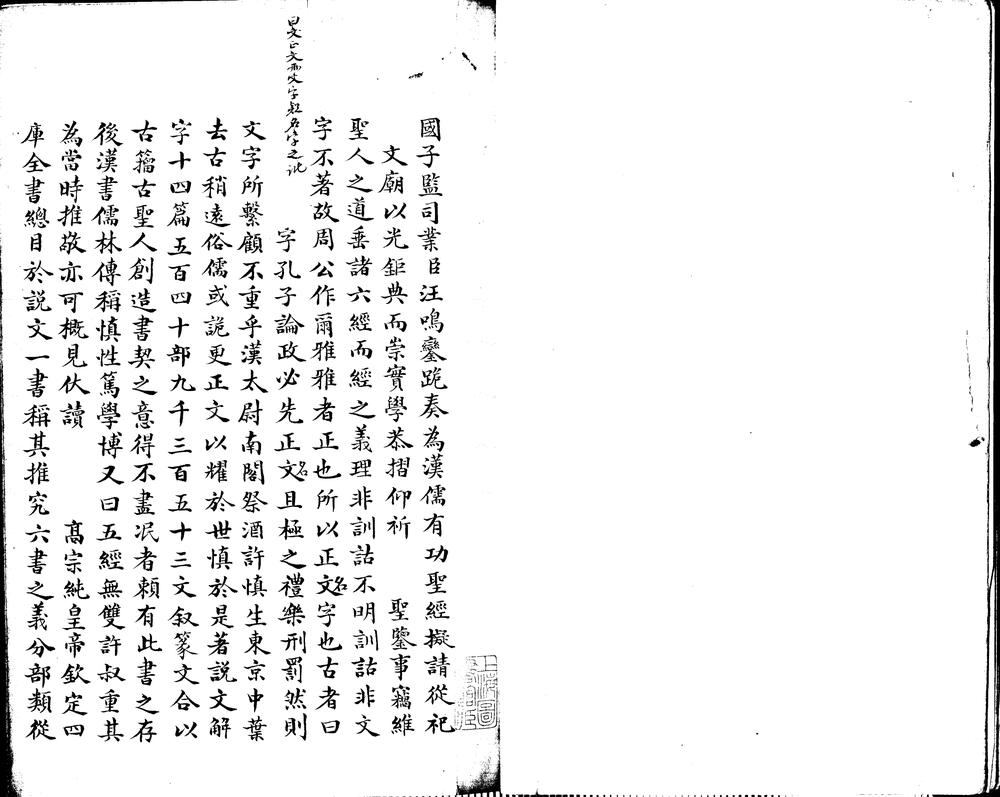 國子監司業臣汪鳴鑾跪奏為漢儒有功聖經擬請從祀
文廟以光鉅典而崇實學恭摺仰祈 聖鑒事竊維
聖人之道垂諸六經而經之義理非訓詁不明訓詁非文
字不著故周公作爾雅雅者正也所以正文名字也古者曰
字孔子論政必先正文名且極之禮樂刑罰然則
文字所繫顧不重乎漢太尉南閣祭酒許慎生東京中葉
去古稍遠俗儒或詭更正文以耀於世慎於是著說文解
字十四篇五百四十部九千三百五十三文叙篆文合以
古籀古聖人創造書契之意得不盡泯者賴有此書之存
後漢書儒林傳稱慎性篤學博又曰五經無雙許叔重其
為當時推敬亦可概見伏讀 高宗純皇帝欽定四
庫全書總目於説文一書稱其推究六書之義分部類從